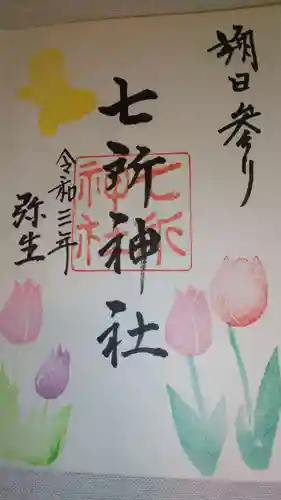 朔日参り
七所神社
令和三年
弥生
七所
神社